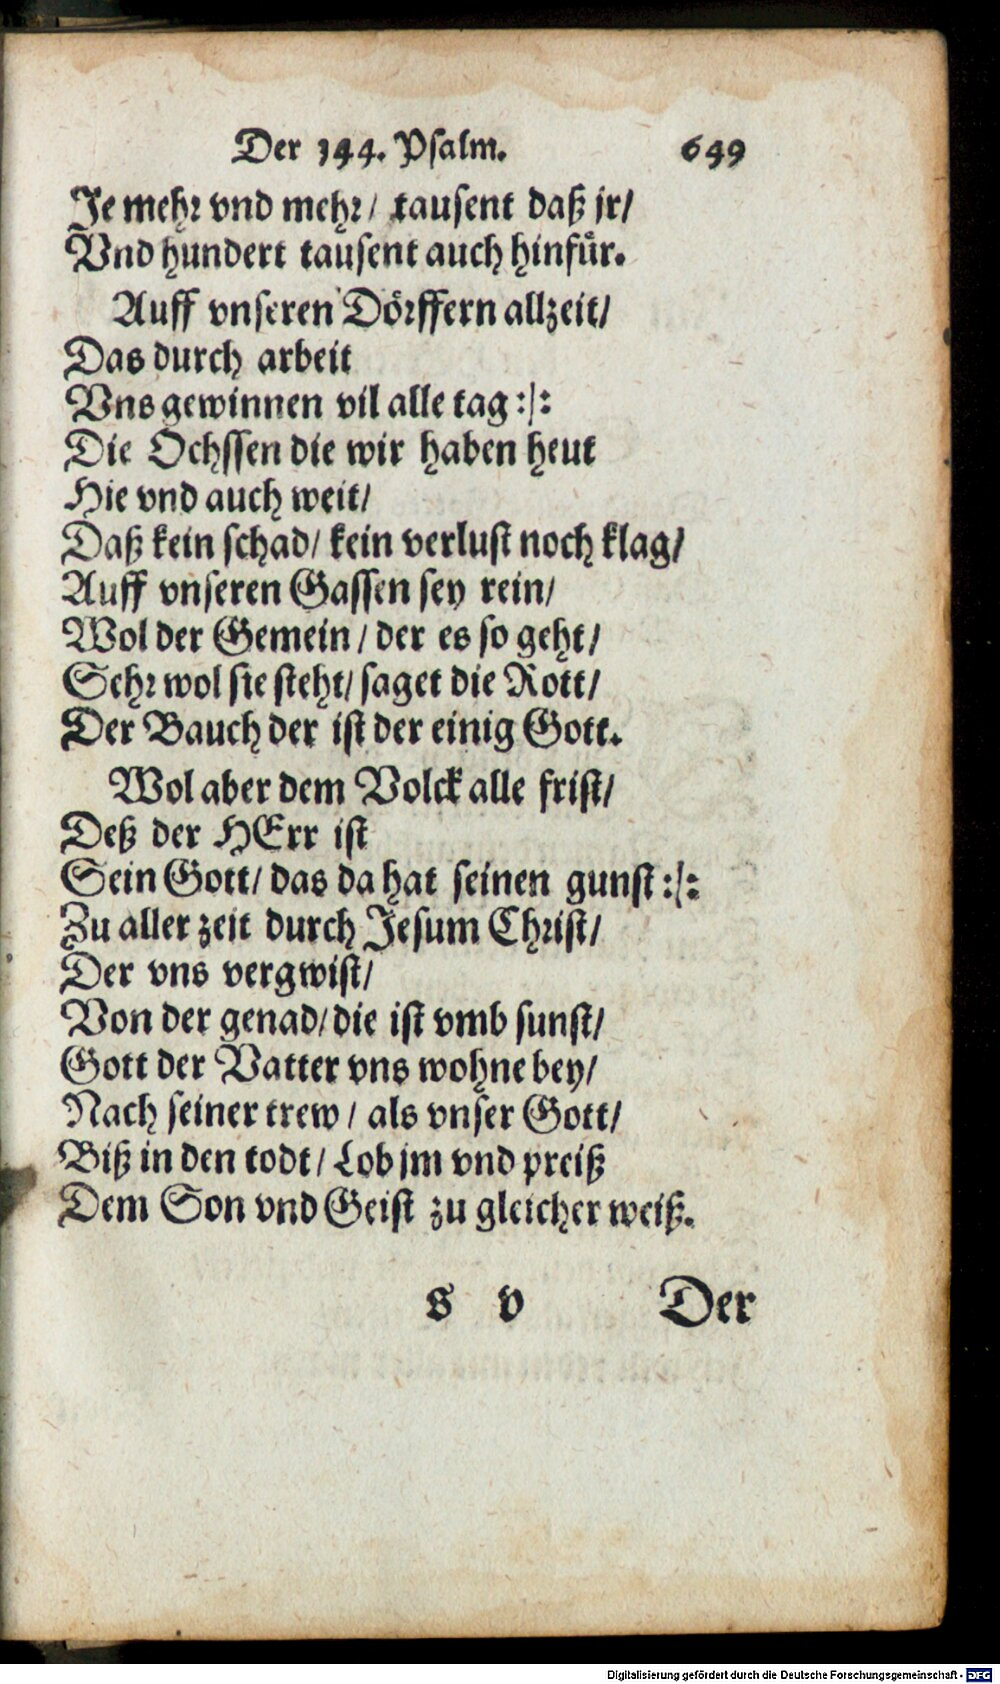 Der 144. Psalm. 649
Je mehr vnd mehr/ tausent daß jr/
Vnd hundert tausent auch hinfür.
Auff vnseren Dörffern allzeit/
Das durch arbeit
Vns gewinnen vil alle tag :/:
Die Ochssen die wir haben heut
Hie vnd auch weit/
Daß kein schad/ kein verlust noch klag/
Auff vnseren Gassen sey rein/
Wol der Gemein/ der es so geht/
Sehr wol sie steht/ saget die Rott/
Der Bauch der ist der einig Gott.
Wol aber dem Volck alle frist/
Deß der HErr ist
Sein Gott/ das da hat seinen gunst :/:
Zu aller zeit durch Jesum Christ/
Der vns vergwist/
Von der genad/ die ist vmb sunst/
Gott der Vatter vns wohne bey/
Nach seiner trew/ als vnser Gott/
Biß in den todt/ Lob jm vnd preiß
Dem Son vnd Geist zu gleicher weiß.
s v Der
Digitalisierung gefördert durch die Deutsche Forschungsgemeinschaft - DFG